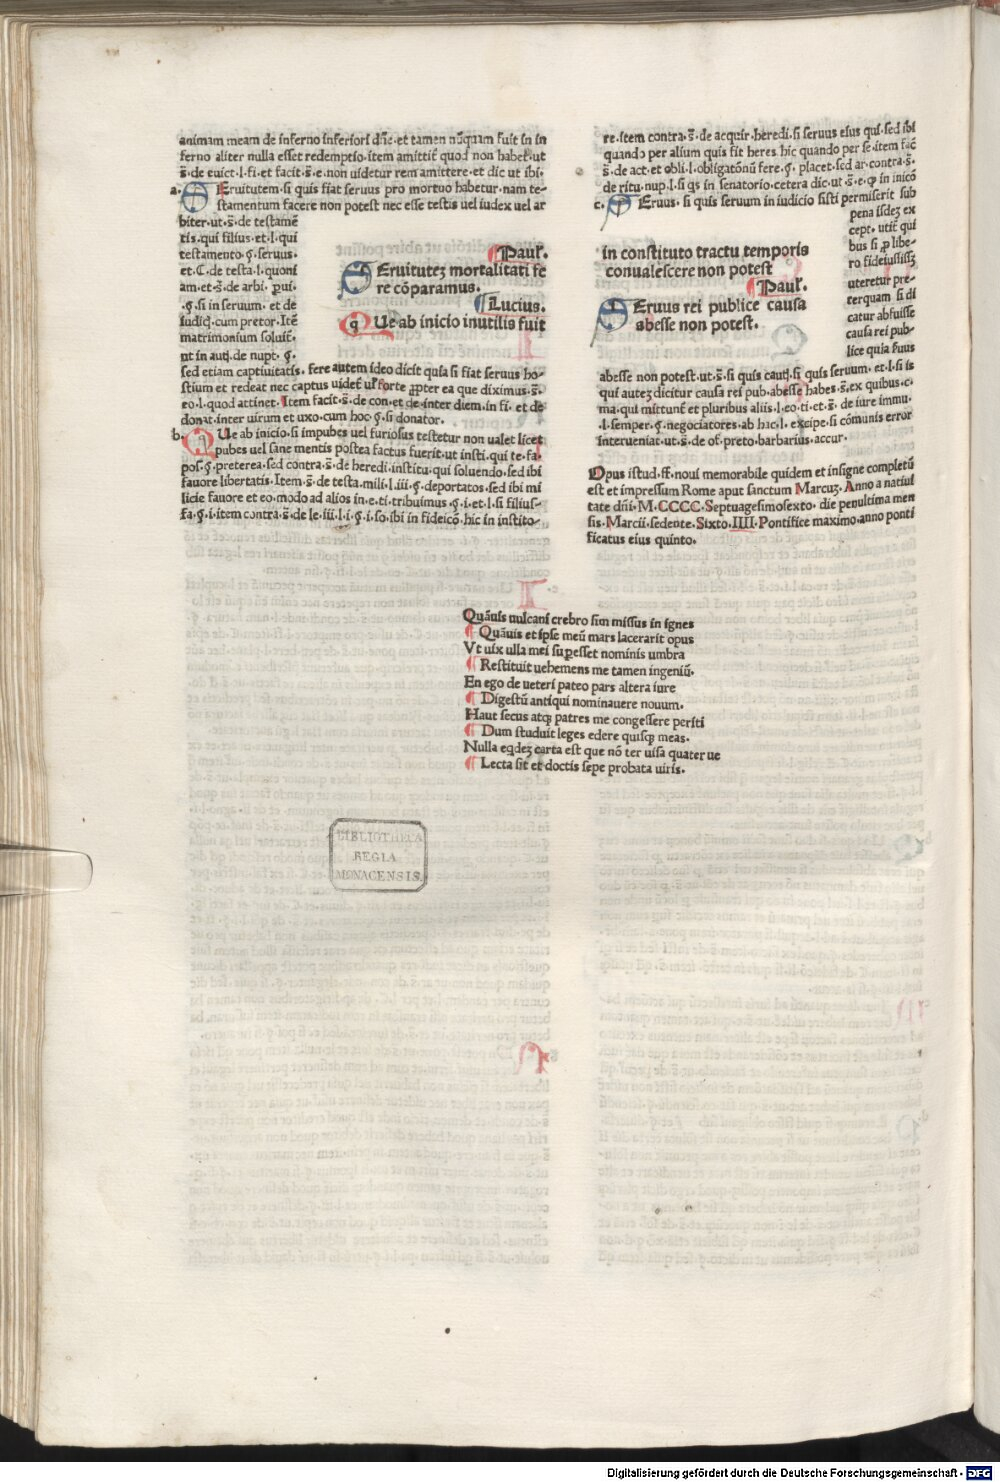 animam meam de inferno inferiori dn̄e·et tamen nūquam fuit in in
ferno aliter nulla esset redemptio·item amittit̄ quod non habet̄·ut
s̄·de euict·l·fi·et facit·s̄·e·non uidetur rem amittere·et dic ut ibi·
a· Eruitutem·si quis fiat seruus pro mortuo habetur·nam te-
stamentum facere non potest nec esse testis uel iudex uel ar
biter·ut·s̄·de testamē
tis·qui filius·et·l·qui
testamento·§·seruus·
et·C·de testa·l·quoni
am·et·s̄·de arbi·
·§·si in seruum·et de
iudiq·cum pretor·Itē
matrimonium soluit̄·
ut in autḣ·de nupt·§·
sed etiam captiuitatis·fere autem ideo dicit quia si fiat seruus ho-
stium et redeat nec captus uidet̄ forte ꝓpter ea que diximus·s̄·
eo·l·quod attinet·Item facit·s̄·de con·et de·inter diem·in fi·et de
donat·inter uirum et uxo·cum hoc·§·si donator·
b· Ue ab inicio·si impubes uel furiosus testetur non ualet licet
pubes uel sane mentis postea factus fuerit·ut insti·qui te·fa·
pos·§·preterea·sed contra·s̄·de heredi·institu·qui soluendo·sed ibi
fauore libertatis·Item·s̄·de testa·mili·l·iii·§·deportatos·sed ibi mi
licie fauore et eo·modo ad alios in·e·ti·tribuimus·§·i·et·l·si filius-
fa·§·i·item contra·s̄·de le·iii·l·i·§·i·so·ibi in fideicō·hic in instito-
Paul̄·
Eruitutez mortalitati fe
re cōparamus·
Lucius·
q Ue ab inicio inutilis fuit
re·item contra·s̄·de acquir·heredi·si seruus eius qui·sed ibi
quando per alium quis fit heres·hic quando per se·item fac̄
s̄·de act·et obli·l·obligatōnū fere·§·placet·sed ar·contra·s̄·
de ritu·nup·l·si q̄s in senatorio·cetera dic·ut·s̄·e·ꝙ in inicō
c· Eruus·si quis seruum in iudicio sisti permiserit sub
pena isdez ex
cept·utit̄ qui
bus si ꝓ libe-
ro fideiussissz
uteretur pre-
terquam si di
catur abfuisse
causa rei pub-
lice quia suus
in constituto tractu temporis
conualescere non potest
Paul̄·
Eruus rei publice causa
abesse non potest·
abesse non potest·ut·s̄·si quis cautḣ·si quis seruum·et·l·si is
qui autez dicitur causa rei pub·abesse habes·s̄·ex quibus·c·
ma·qui mittunt̄ et pluribus aliis·l·eo·ti·et·s̄·de iure immu·
·l·semper·§·negociatores·ab hac·l·excipe·si cōmunis error
interueniat·ut·s̄·de of·preto·barbarius·accur·
Opus istud·ff·noui memorabile quidem et insigne completū
est et impressum Rome aput sanctum Marcuz·Anno a natiui
tate dn̄i·M·CCCC·Septuagesimosexto·die penultima men
sis·Marcii·sedente·Sixto·IIII·Pontifice maximo·anno ponti
ficatus eius quinto·
Quāuis uulcani crebro sim missus in ignes
Quāuis et ipse meū mars lacerarit opus
Vt uix ulla mei suꝑesset nominis umbra
Restituit uehemens me tamen ingeniū·
En ego de ueteri pateo pars altera iure
Digestū antiqui nominauere nouum·
Haut secus atqꝫ patres me congessere periti
Dum studuit leges edere quisqꝫ meas·
Nulla eq̄dez carta est que nō ter uisa quater ue
Lecta sit et doctis sepe probata uiris·
BIBLIOTHECA
REGIA
MONACENSIS.
Digitalisierung gefördert durch die Deutsche Forschungsgemeinschaft - DFG